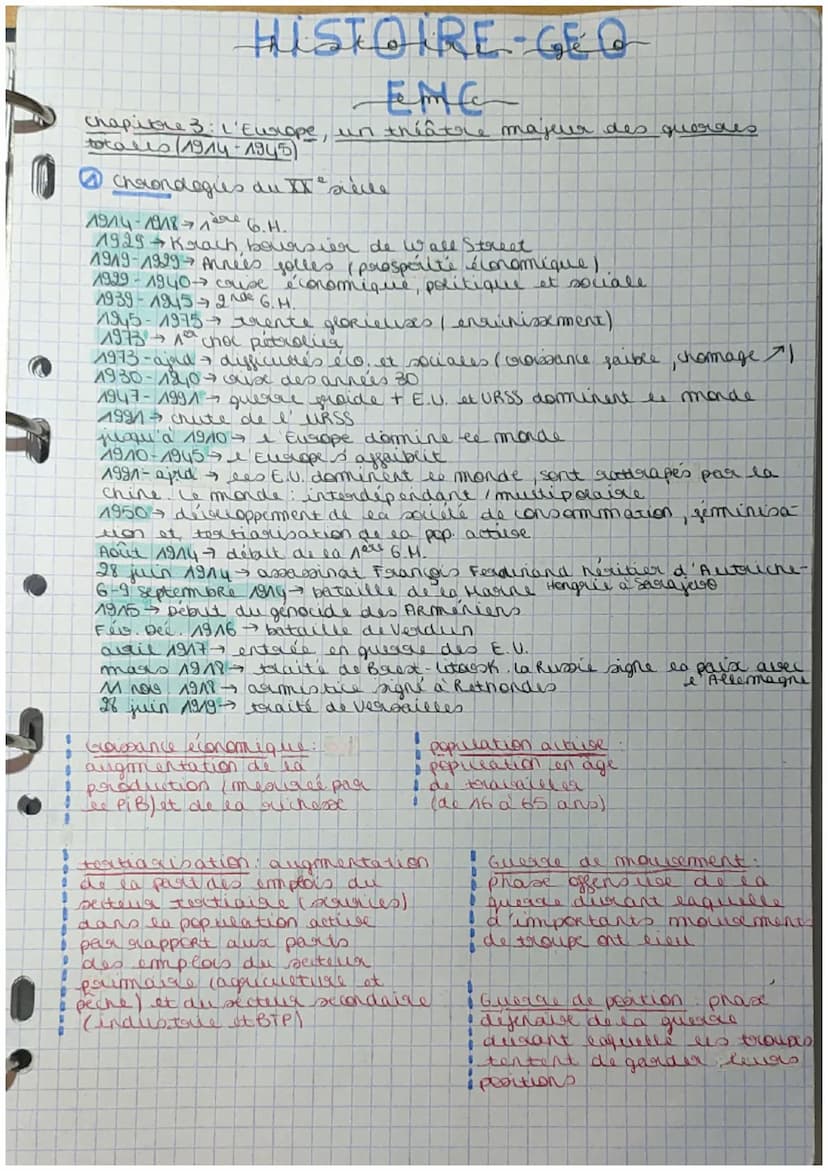 HISTOIRE-GEO
histoire-géo
EMC
emc
chapitre 3 : L'Europe, un théâtre majeur des guerres
totales (1914-1945)
① Chronologies du XXe siècle
1914-1918 → 1ère G.M.
1929 → Krach boursier de Wall Street
1919-1929 → Années folles (prospérité économique)
1929-1940 → crise économique, politique et sociale
1939-1945 → 2nde G.M.
1945-1975 → trente glorieuses (enrichissement)
1973 → 1er choc pétrolier
1973-ajrd → difficultés éco. et sociales (croissance faible, chomage ↗)
1930-1940 → crise des années 30
1947-1991 → guerre froide + E.U. et URSS dominent le monde
1991 → chute de l'URSS
jusqu'à 1910 → l'Europe domine le monde
1910-1945 → l'Europe s'affaiblit
1991-ajrd → les E.U. dominent le monde, sont rattrapés par la
chine. Le monde : interdépendant / multipolaire
1950 → développement de la société de consommation, féminisa-
tion et tertiarisation de la pop. active
Août 1914 → début de la 1ère G.M.
28 juin 1914 → assassinat François Ferdinand héritier d'Autriche-
Hongrie à Sarajevo
6-9 septembre 1914 → bataille de la Marne
1915 → Début du génocide des Arméniens
Fév. Déc. 1916 → bataille de Verdun
avril 1917 → entrée en guerre des E.U.
mars 1918 → traité de Brest-Litovsk. la Russie signe la paix avec
l'Allemagne
11 nov 1918 → armistice signé à Rethondes
28 juin 1919 → traité de Versailles
croissance économique :
augmentation de la
production (mesuré par
le PiB) et de la richesse
population active :
population en âge
de travailler
(de 16 à 65 ans)
tertiarisation : augmentation
de la part des emplois du
secteur tertiaire (services)
dans la population active
par rapport aux parts
des emplois du secteur
primaire (agriculture et
pêche) et du secteur secondaire
(industrie et BTP)
Guerre de mouvement :
phase offensive de la
guerre durant laquelle
d'importants mouvements
de troupe ont lieu
Guerre de position : phase
défensive de la guerre
durant laquelle les troupes
tentent de garder leurs
positions